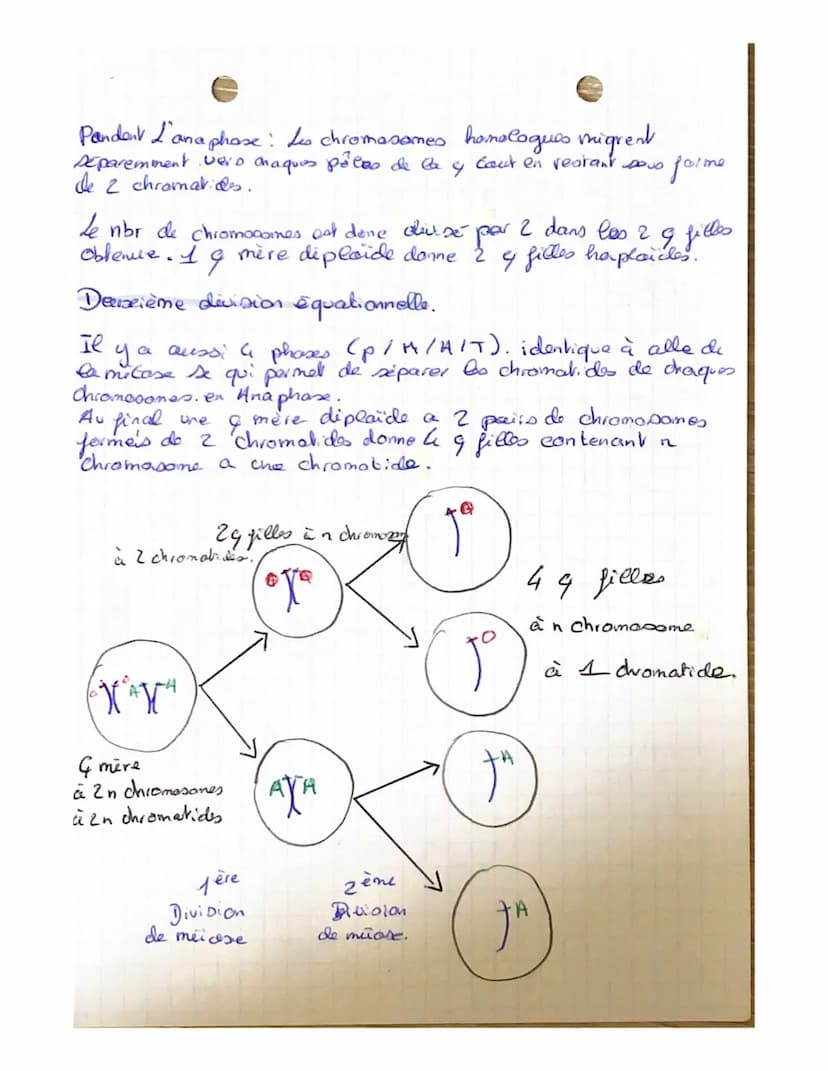 Pendant L'anaphase : Les chromosomes homologues migrent
séparemment vers chaques pôles de la ç tout en restant sous forme
de 2 chromatides.
Le nbr de chromosomes est donc divisé par 2 dans les 2 ç filles
obtenue. 1 ç mère diploïde donne 2 ç filles haploïdes.
Deuxième division équationnelle.
Il y a aussi 4 phases (P/M/A/T). identique à alle de
la mitose se qui permet de séparer les chromatides de chaques
chromosomes. en Anaphase.
Au final une ç mère diploïde a 2 pairs de chromosomes
formés de 2 chromatides donne 4 ç filles contenant n
chromosome a une chromatide.
2 ç filles à n chromoso
à 2 chromatides.
4 ç filles
à n chromosome
à 1 chromatide.
O O A A
A A
O
A
A
ç mère
à 2n chromosomes
à 2n chromatides
1ère
Division
de méiose
2ème
Division
de méiose.